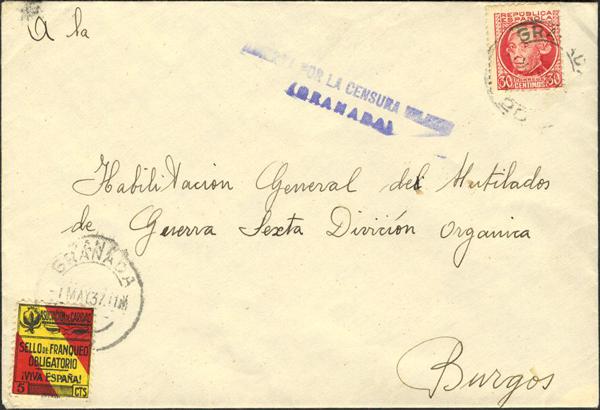 A la
REPÚBLICA
ESPAÑOLA
30 CENTIMOS 30
GRANADA
POR LA CENSURA
(GRANADA)
Habilitacion General del Mutilados
de Guerra Sexta División Organica
Burgos
GRANADA
1 MAY 37 11M
SELLO DE FRANQUEO
OBLIGATORIO
¡VIVA ESPAÑA!
5 CTS